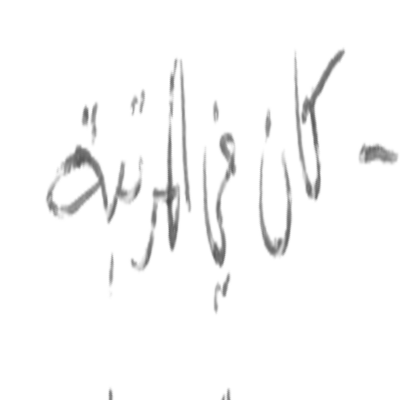 - كان في المرتبة